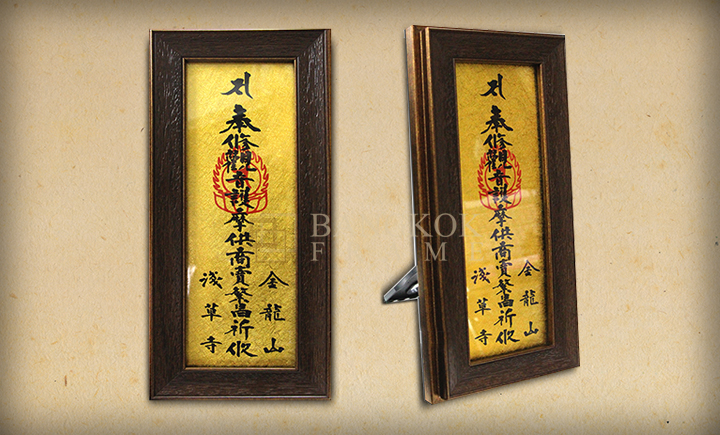 金龍山
奉修觀音護摩供商賣繁昌祈攸
淺草寺
金龍山
奉修觀音護摩供商賣繁昌祈攸
淺草寺